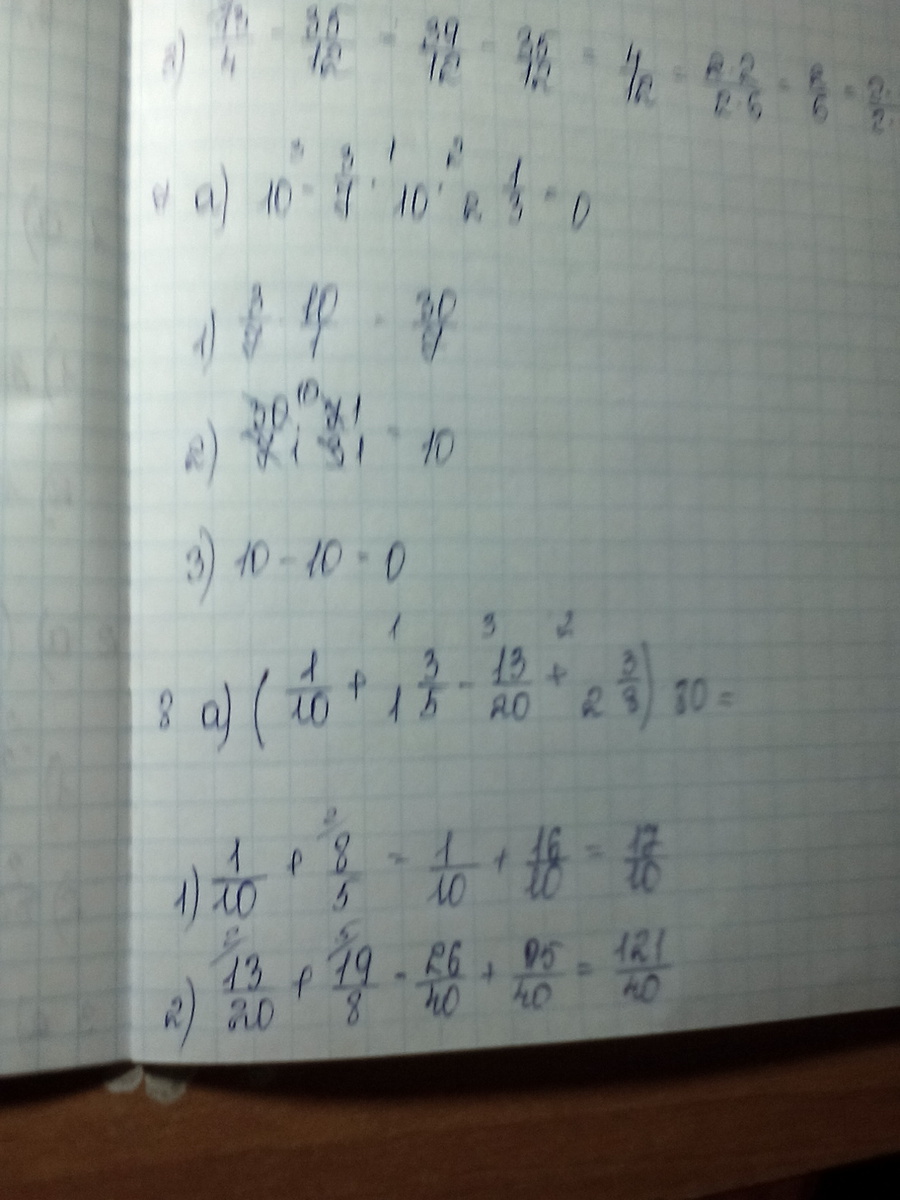 3) 13/4 - 35/12 = 39/12 - 35/12 = 4/12 = 2·2/2·6 = 2/6 = 2·/2·
а) 10 - 3/7 · 10 · 2 1/3 = 0
1) 3/7 · 10/1 = 30/7
2) 30/7 · 7/3 = 10
3) 10 - 10 = 0
8 а) (1/10 + 1 3/5 - 13/20 + 2 3/8) 80 =
1) 1/10 + 8/5 = 1/10 + 16/10 = 17/10
2) 13/20 + 19/8 = 26/40 + 95/40 = 121/40